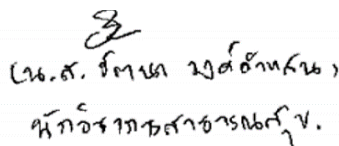 (น.ส. ชัตนก วงค์คำแสน)
นักวิชาการสาธารณสุข.